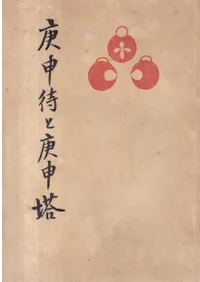 庚申待と庚申塔